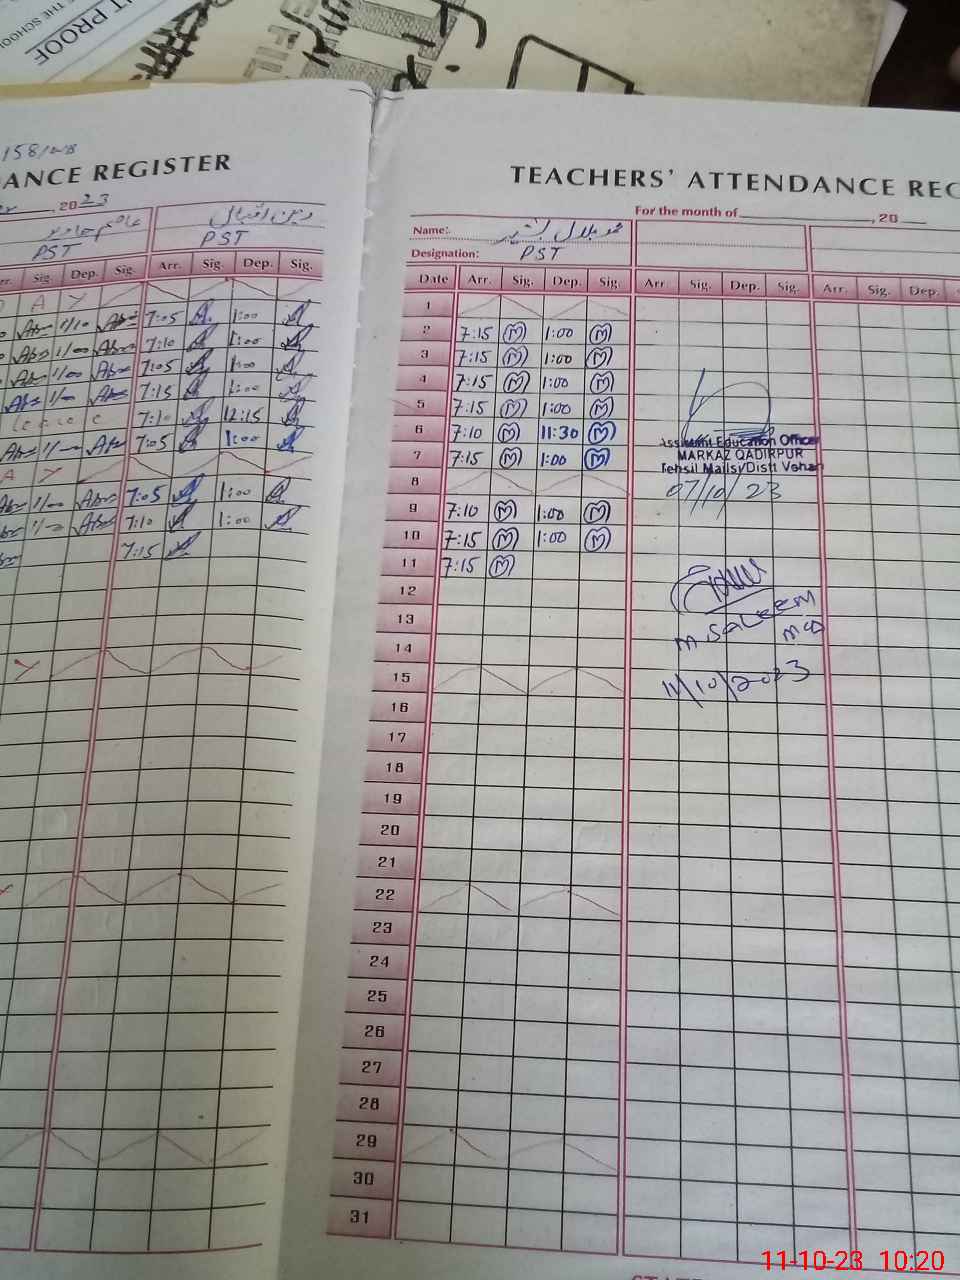 T PROOF
THE SCHOOL
158/WB
ANCE REGISTER
, 2023
PST
PST
Sig. Dep. Sig. Arr. Sig. Dep. Sig.
1/10 7:05 1:00
1/00 7:10 1:00
1/00 7:05 1:00
1/00 7:15 1:00
Leave 7:10 12:15
7:05 1:00
1/00 7:05 1:00
7:10 1:00
7:15
TEACHERS' ATTENDANCE REC
For the month of , 20
Name: محمد بلال
Designation: PST
Date Arr. Sig. Dep. Sig. Arr Sig. Dep. Sig. Arr. Sig. Dep.
1
2 7:15 M 1:00 M
3 7:15 M 1:00 M
4 7:15 M 1:00 M
5 7:15 M 1:00 M
6 7:10 M 11:30 M
7 7:15 M 1:00 M
8
9 7:10 M 1:00 M
10 7:15 M 1:00 M
11 7:15 M
12
13
14
15
16
17
18
19
20
21
22
23
24
25
26
27
28
29
30
31
Assistant Education Officer
MARKAZ QADIRPUR
Tehsil Mailsi/Distt Vehari
07/10/23
M SALEEM
11/10/2023
11-10-23 10:20